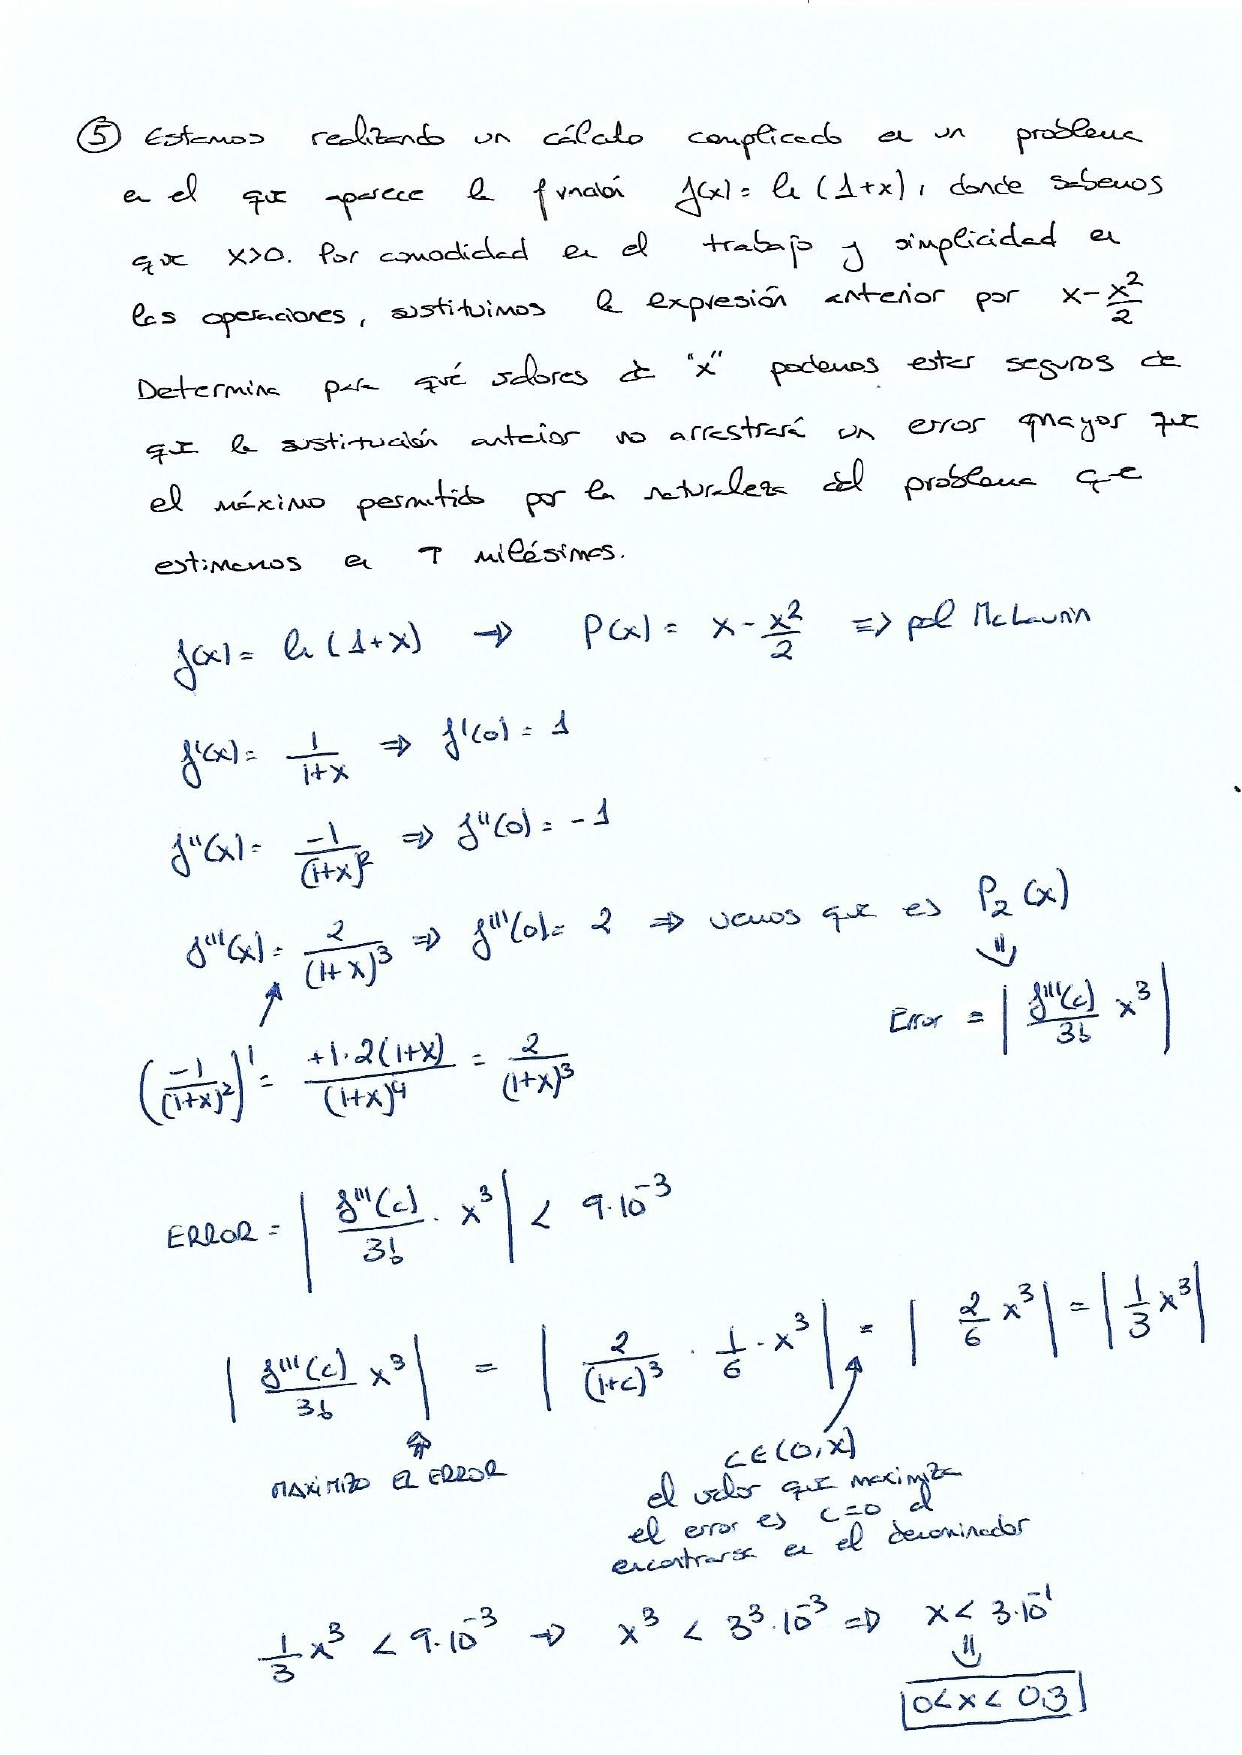 ⑤ Estamos realizando un cálculo complicado en un problema
en el que aparece la función f(x) = ln (1+x), donde sabemos
que x>0. Por comodidad en el trabajo y simplicidad en
las operaciones, sustituimos la expresión anterior por x - x²/2
Determina para qué valores de "x" podemos estar seguros de
que la sustitución anterior no arrastrará un error mayor que
el máximo permitido por la naturaleza del problema que
estimamos en 9 milésimas.
f(x) = ln (1+x) → P(x) = x - x²/2 => pol McLaurin
f'(x) = 1/(1+x) => f'(0) = 1
f''(x) = -1/(1+x)² => f''(0) = -1
f'''(x) = 2/(1+x)³ => f'''(0) = 2 => vemos que es P₂(x)
Error = | f'''(c)/3! x³ |
(-1/(1+x)²)' = +1·2(1+x)/(1+x)⁴ = 2/(1+x)³
ERROR = | f'''(c)/3! · x³ | < 9·10⁻³
| f'''(c)/3! x³ | = | 2/(1+c)³ · 1/6 · x³ | = | 2/6 x³ | = | 1/3 x³ |
MAXIMIZO EL ERROR
c∈(0,x)
el valor que maximiza
el error es c=0 al
encontrarse en el denominador
1/3 x³ < 9·10⁻³ → x³ < 3³·10⁻³ => x < 3·10⁻¹
0<x<0,3